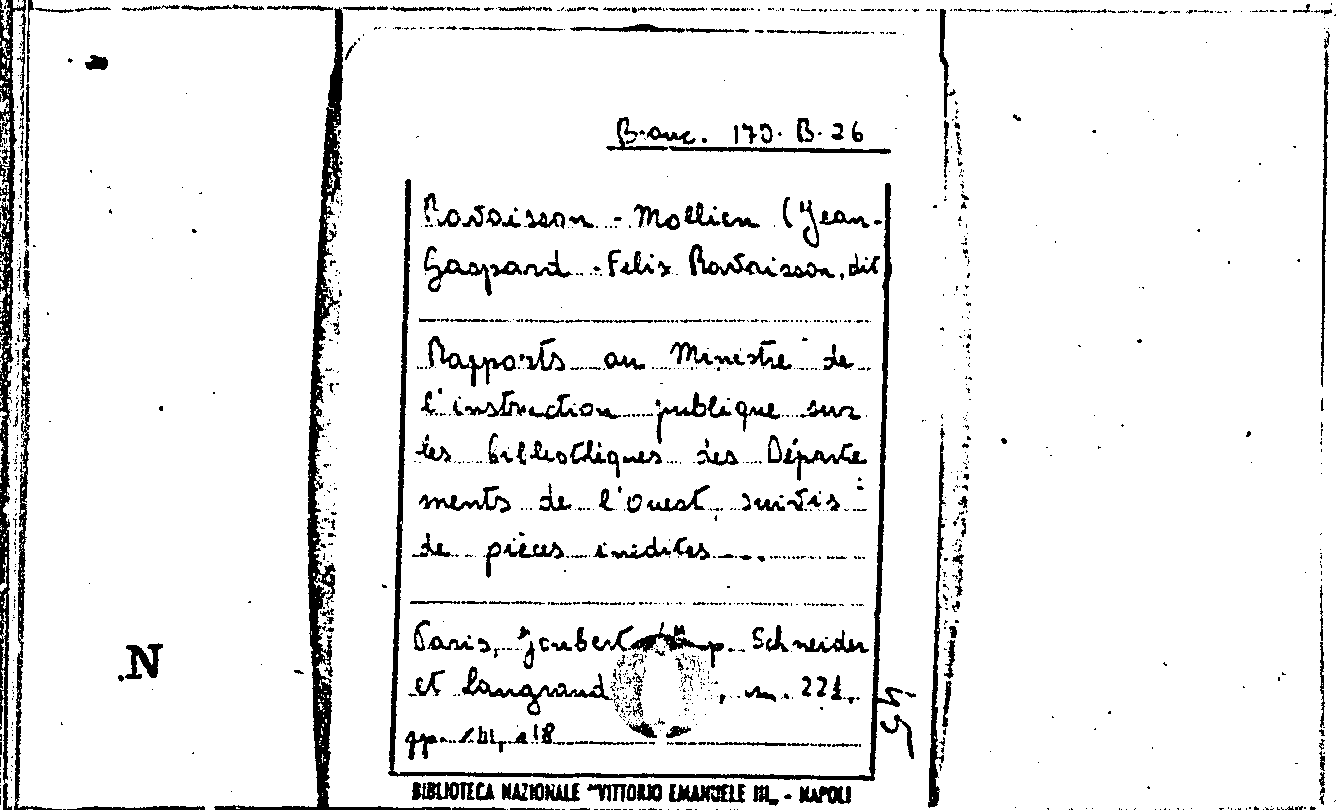 Branc. 179. B. 26
Ravaisson - Mollien (Jean-
Gaspard - Felix Ravaisson, dit)
Rapports au Ministre de
l'instruction publique sur
les bibliothèques des Départe
ments de l'Ouest, suivis
de pièces inédites ...
Paris, Joubert Imp. Schneider
et Langrand
pp.
45
N.
BIBLIOTECA NAZIONALE "VITTORIO EMANUELE III„ - NAPOLI